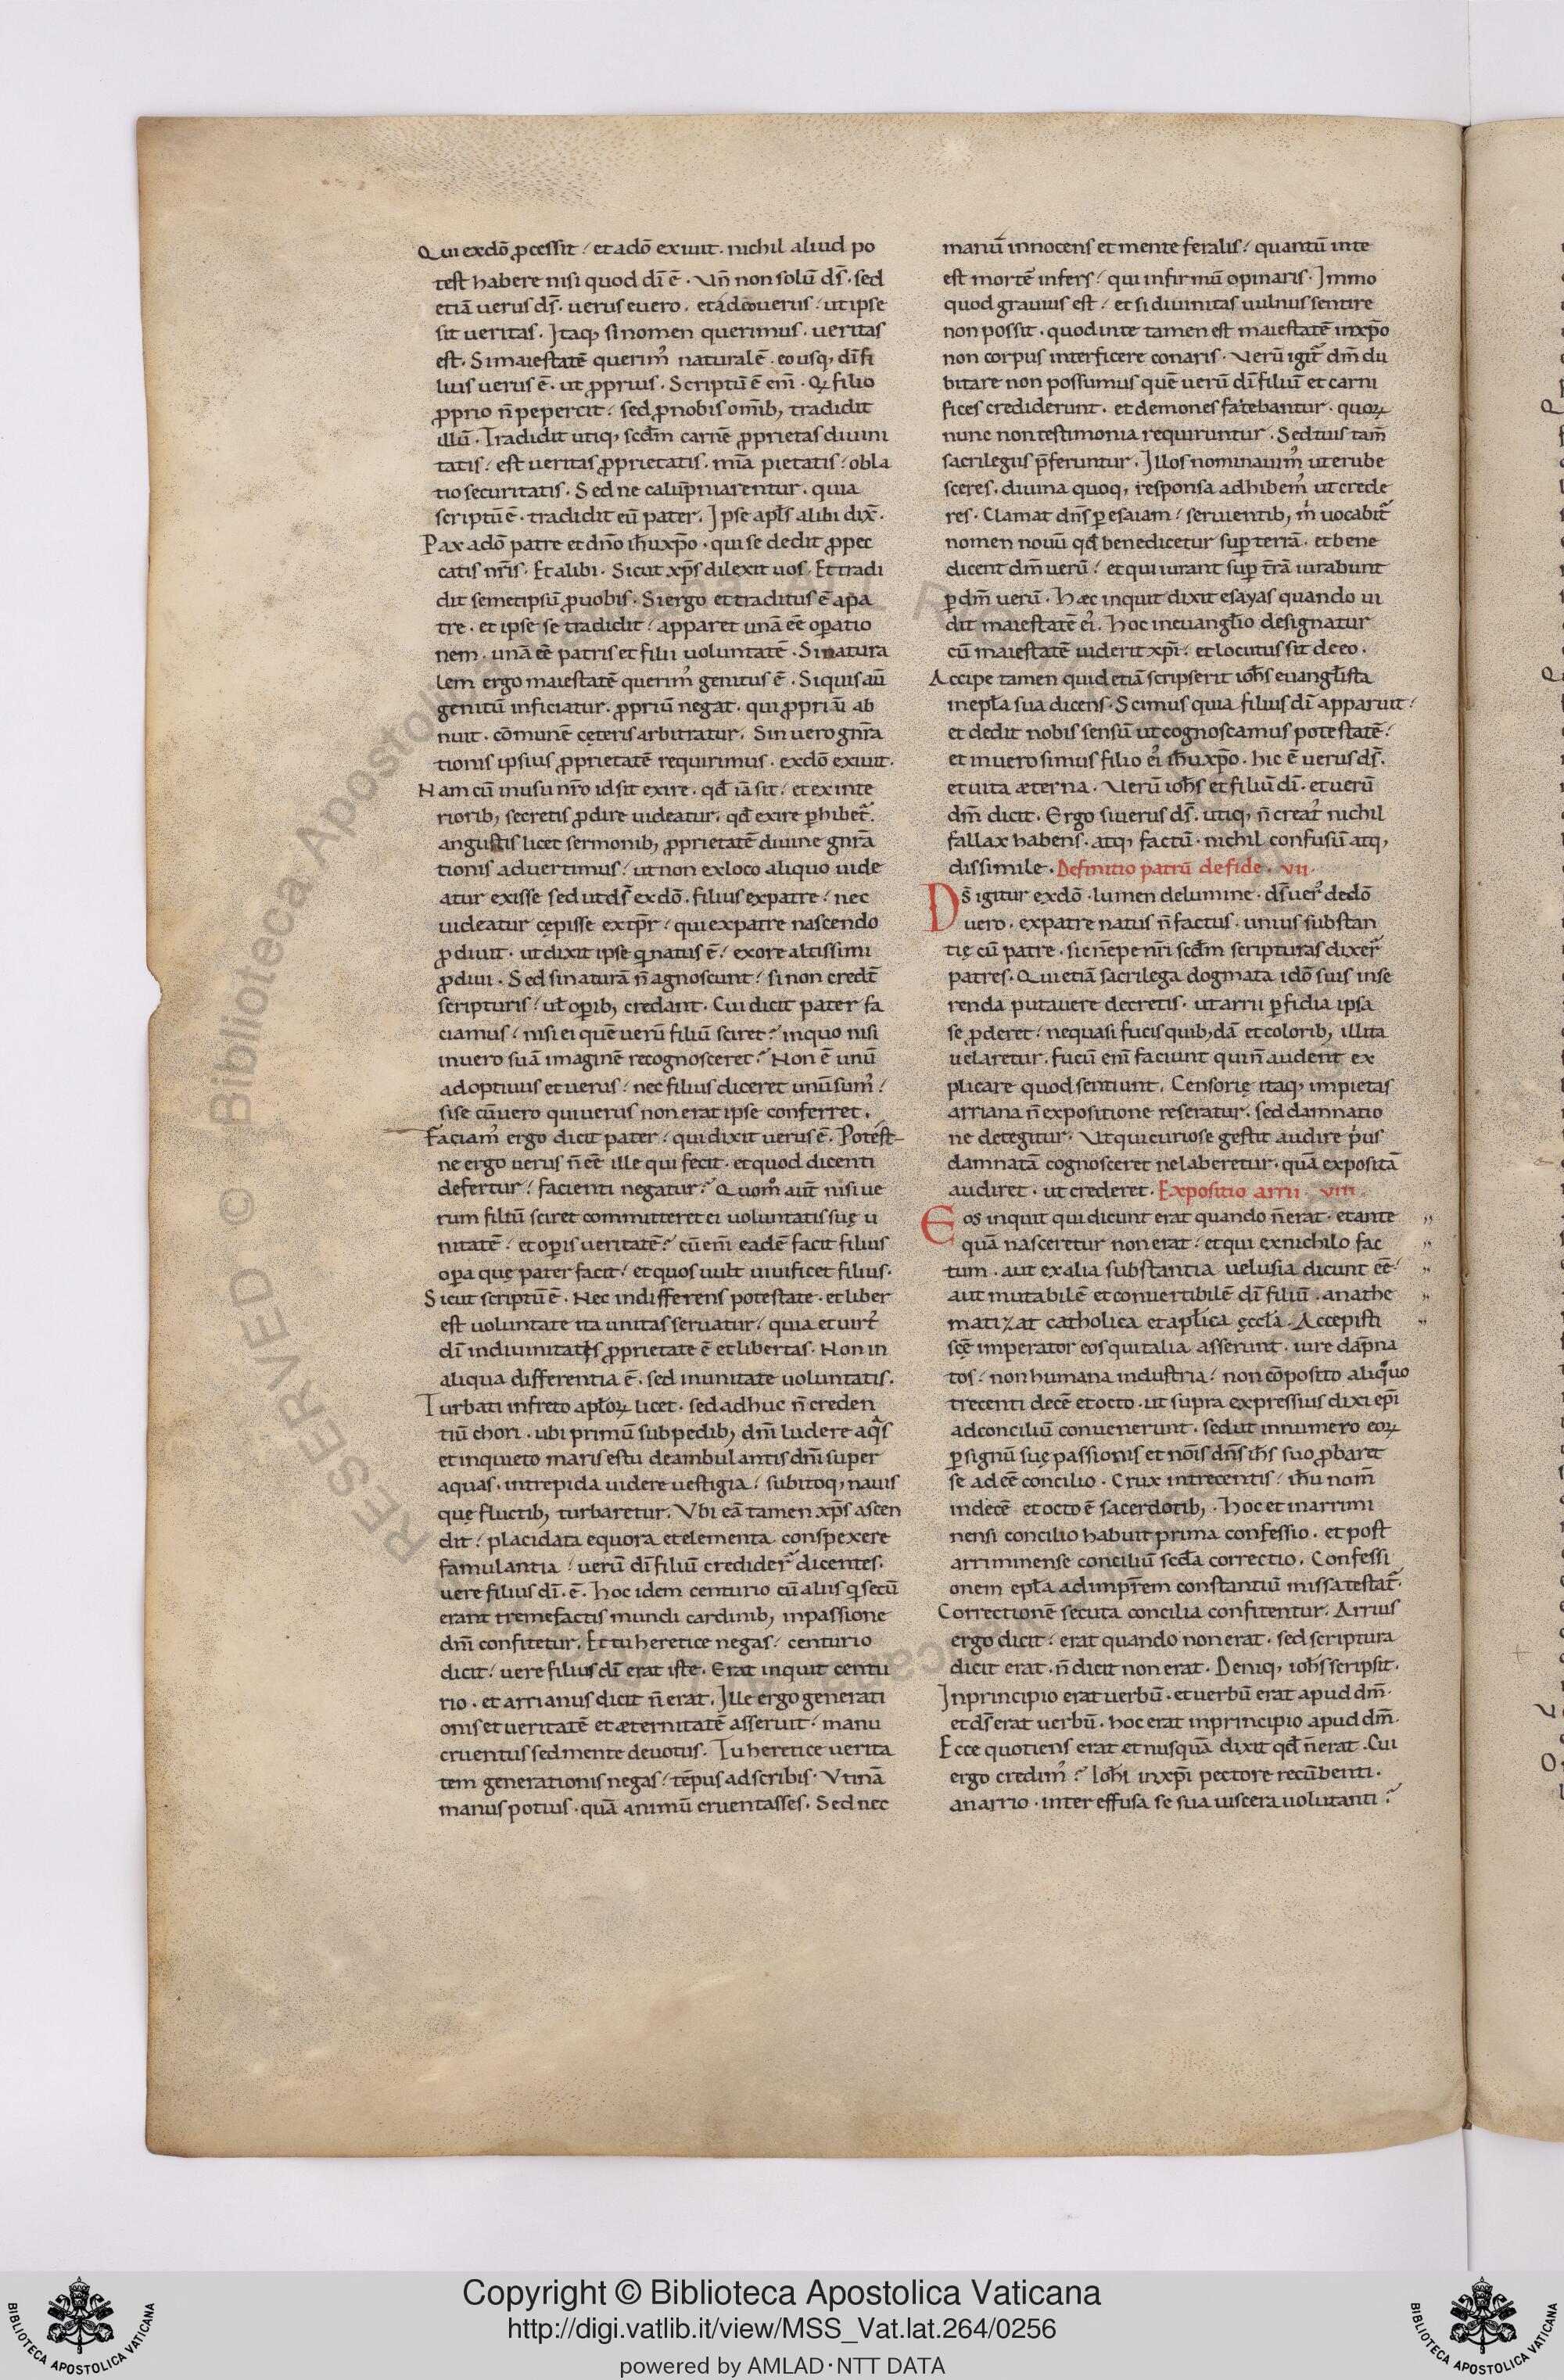 Qui ex dō ꝓcessit / et a dō exiuit · nichil aliud po
test habere nisi quod dī ē · Vñ non solū ds̄ · sed
etiā uerus ds̄ · uerus e uero · et a deo uerus / ut ipse
sit ueritas · Itaq; si nomen querimus · ueritas
est · Si maiestatē querim᷒ naturalē · eo usq; dī fi
lius uerus ē · ut ꝓprius · Scriptū ē em̄ · Qꝝ filio
ꝓprio n̄ pepercit / sed ꝓ nobis omīb; tradidit
illū · Tradidit utiq; scd̄m carnē ꝓprietas diuini
tatis / est ueritas ꝓprietatis · mīa pietatis / obla
tio securitatis · Sed ne calūpniarentur · quia
scriptū ē · tradidit eū pater · Ipse apl̄s alibi dix̄ ·
Pax a dō patre et dn̄o ih̄u xp̄o · qui se dedit ꝓ pec
catis nr̄is · Et alibi · Sicut xp̄s dilexit uos · Et tradi
dit semetipsū ꝓ uobis · Si ergo et traditus ē a pa
tre · et ipse se tradidit / apparet unā eē oꝑatio
nem · unā eē patris et filii uoluntatē · Si natura
lem ergo maiestatē querim᷒ genitus ē · Si quis aū
genitū inficiatur · ꝓpriū negat · qui ꝓpriū ab
nuit · cōmunē cęteris arbitratur · Sin uero gnr̄a
tionis ipsius ꝓprietatē requirimus · ex dō exiuit ·
Nam cū in usu nr̄o id sit exire · qd̄ iā sit / et ex inte
riorib; secretis ꝓdire uideatur · qd̄ exire ꝑhibet᷑ ·
angustis licet sermonib; ꝓprietatē diuine gnr̄a
tionis aduertimus / ut non ex loco aliquo uide
atur exisse sed ut ds̄ ex dō · filius ex patre / nec
uideatur cępisse ex tp̄r / qui ex patre nascendo
ꝓdiuit · ut dixit ipse q̇ natus ē / ex ore altissimi
ꝓdiui · Sed si naturā n̄ agnoscunt / si non credt̄
scripturis / ul̄ oꝑib; credant · Cui dicit pater fa
ciamus / nisi ei quē uerū filiū sciret ? in quo nisi
in uero suā imaginē recognosceret ? Non ē unū
adoptiuus et uerus / nec filius diceret unū sum᷒ /
si se cū uero qui uerus non erat ipse conferret ·
Faciam᷒ ergo dicit pater / qui dixit uerus ē · Potest
ne ergo uerus n̄ eē ille qui fecit · et quod dicenti
defertur / facienti negatur ? Quom̊ aut̄ nisi ue
rum filiū sciret committeret ei uoluntatis suę u
nitatē / et oꝑis ueritatē ? cū em̄ eadē facit filius
oꝑa quę pater facit / et quos uult uiuificet filius ·
Sicut scriptū ē · Nec indifferens potestate · et liber
est uoluntate ita unitas seruatur / quia et uirt᷒
dī in diuinitatis ꝓprietate ē et libertas · Non in
aliqua differentia ē · sed in unitate uoluntatis ·
Turbati in freto apl̄oꝝ licet · sed adhuc n̄ creden
tiū chori · ubi primū sub pedib; dn̄i ludere aq̇s
et in quieto maris estu deambulantis dn̄i super
aquas · intrepida uidere uestigia / subitoq; nauis
quę fluctib; turbaretur · Vbi eā tamen xp̄s ascen
dit / placidata equora et elementa conspexere
famulantia / uerū dī filiū credider᷑ dicentes ·
uere filius dī · ē · hoc idem centurio cū aliis q̇ secū
erant tremefactis mundi cardinib; in passione
dn̄i confitetur · Et tu heretice negas / centurio
dicit / uere filius dī erat iste · Erat inquit centu
rio · et arrianus dicit n̄ erat · Ille ergo generati
onis et ueritatē et æternitatē asseruit / manu
cruentus sed mente deuotus · Tu heretice uerita
tem generationis negas / tēpus adscribis · Vtinā
manus potius · quā animū cruentasses · Sed nec
manū innocens et mente feralis / quantū in te
est mortē infers / qui infirmū opinaris · Immo
quod grauius est / et si diuinitas uulnus sentire
non possit · quod in te tamen est maiestatē in xp̄o
non corpus interficere conaris · Verū igit᷑ dm̄ du
bitare non possumus quē uerū dī filiū et carni
fices crediderunt · et demones fatebantur · quoꝝ
nunc non testimonia requiruntur · Sed tuis tam̄
sacrilegus p̄feruntur · Illos nominauim᷒ ut erube
sceres · diuina quoq; responsa adhibem᷒ ut crede
res · Clamat dn̄s ꝑ esaiam / seruientib; m̊ uocabit᷑
nomen nouū qd̄ benedicetur suꝑ terrā · et bene
dicent dm̄ uerū / et qui iurant suꝑ t̄rā iurabunt
ꝑ dm̄ uerū · Hæc inquit dixit esayas quando ui
dit maiestatē ei᷒ · hoc in euangl̄io designatur
cū maiestatē uiderit xp̄i / et locutus sit de eo ·
Accipe tamen quid etiā scripserit ioh̄s euangl̄ista
in epl̄a sua dicens · Scimus quia filius dī apparuit /
et dedit nobis sensū ut cognoscamus potestatē /
et in uero simus filio ei᷒ ih̄u xp̄o · hic ē uerus ds̄ ·
et uita æterna · Verū ioh̄s et filiū dī · et uerū
dm̄ dicit · Ergo si uerus ds̄ · utiq; n̄ creat᷒ nichil
fallax habens · atq; factū · nichil confusū atq;
dissimile · Definitio patrū de fide · vii ·
Ds̄ igitur ex dō · lumen de lumine · ds̄ uer᷒ de dō
uero · ex patre natus n̄ factus · unius substan
tię cū patre · sic n̄epe nr̄i scd̄m scripturas dixer᷑
patres · Qui etiā sacrilega dogmata idō suis inse
renda putauere decretis · ut arrii ꝑfidia ipsa
se ꝓderet / ne quasi fucis quib;dā et colorib; illita
uelaretur · fucū em̄ faciunt qui n̄ audent ex
plicare quod sentiunt · Censorię itaq; impietas
arriana n̄ expositione reseratur · sed damnatio
ne detegitur · Vt qui curiose gestit audire p᷒us
damnatā cognosceret ne laberetur · quā expositā
audiret · ut crederet · Expositio arrii · viii ·
Eos inquit qui dicunt erat quando n̄ erat · et ante
quā nasceretur non erat / et qui ex nichilo fac
tum · aut ex alia substantia uel usia dicunt eē /
aut mutabilē et conuertibilē dī filiū · anathe
matizat catholica et apl̄ica ęccl̄a · Accepisti
scē imperator eos qui talia asserunt · iure dāpna
tos / non humana industria / non cōposito aliquo
trecenti decē et octo · ut supra expressius dixi ep̄i
ad conciliū conuenerunt · sed ut in numero eoꝝ
ꝑ signū suę passionis et nōis dn̄s ih̄s suo ꝓbaret
se adeē concilio · Crux in trecentis / ih̄u nom̄
in decē et octo ē sacerdotib; · hoc et in arrimi
nensi concilio habuit prima confessio · et post
arriminense conciliū scd̄a correctio · Confessi
onem epl̄a ad impr̄em constantiū missa testat᷑ ·
Correctionē secuta concilia confitentur · Arrius
ergo dicit / erat quando non erat · sed scriptura
dicit erat · n̄ dicit non erat · Deniq; ioh̄s scripsit ·
In principio erat uerbū · et uerbū erat apud dm̄ ·
et ds̄ erat uerbū · hoc erat in principio apud dm̄ ·
Ecce quotiens erat et nusquā dixit qd̄ n̄ erat · Cui
ergo credim᷒ ? Ioh̄i in xp̄i pectore recūbenti ·
an arrio · inter effusa se sua uiscera uolutanti ?
RESERVED © Biblioteca Apostolica
Copyright © Biblioteca Apostolica Vaticana
http://digi.vatlib.it/view/MSS_Vat.lat.264/0256
powered by AMLAD·NTT DATA
BIBLIOTECA APOSTOLICA VATICANA
BIBLIOTECA APOSTOLICA VATICANA